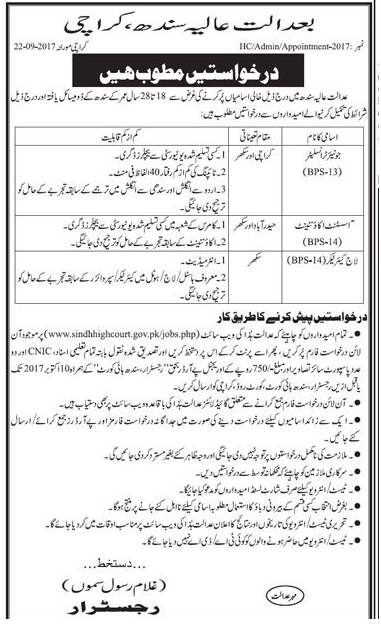 بعدالت عالیہ سندھ، کراچی
نمبر: HC/Admin/Appointment-2017
کراچی مورخہ 22-09-2017
درخواستیں مطلوب ہیں
عدالت عالیہ سندھ میں درج ذیل خالی اسامیاں پر کرنے کی غرض سے 18 تا 28 سال عمر کے سندھ کے ڈومیسائل یافتہ اور درج ذیل
شرائط کی تکمیل کرنیوالے امیدواروں سے درخواستیں مطلوب ہیں:
اسامی کا نام
مقام تعیناتی
کم از کم قابلیت
جونیئر ٹرانسلیٹر
(BPS-13)
کراچی اور سکھر
1۔ کسی تسلیم شدہ یونیورسٹی سے بیچلرز ڈگری۔
2۔ ٹائپنگ کی کم از کم رفتار 40 الفاظ فی منٹ۔
3۔ اردو سے انگلش اور سندھی سے انگلش میں ترجمے کے سابقہ تجربے کے حامل کو
ترجیح دی جائیگی۔
اسسٹنٹ اکاؤنٹینٹ
(BPS-14)
حیدرآباد اور سکھر
1۔ کامرس کے شعبہ میں کسی تسلیم شدہ یونیورسٹی سے بیچلرز ڈگری۔
2۔ اکاؤنٹینٹ کے سابقہ تجربے کے حامل کو ترجیح دی جائیگی۔
لاج کیئر ٹیکر (BPS-14)
سکھر
1۔ انٹرمیڈیٹ۔
2۔ معروف ہاسٹل/لاج/ہوٹل میں کیئر ٹیکر/سپروائزر کے سابقہ تجربے کے حامل کو
ترجیح دی جائیگی۔
درخواستیں پیش کرنے کا طریق کار
• تمام امیدواروں کو چاہیئے کہ عدالت ہذا کی ویب سائٹ (www.sindhhighcourt.gov.pk/jobs.php) پر موجود آن
لائن درخواست فارم پر کریں، پھر اسے پرنٹ کرکے اس پر دستخط کریں اور تصدیق شدہ نقول بابتہ تمام تعلیمی اسناد، CNIC اور دو عدد
پاسپورٹ سائز تصاویر اور مبلغ -/750 روپے کے اوریجنل پے آرڈر بحق "رجسٹرار، سندھ ہائی کورٹ" کے ہمراہ 10 اکتوبر 2017 تک
یا قبل ازیں رجسٹرار، سندھ ہائی کورٹ، کورٹ روڈ، کراچی کو ارسال کریں۔
• آن لائن درخواست فارم جمع کرانے سے متعلق گائیڈ لائنز عدالت ہذا کی باقاعدہ ویب سائٹ پر بھی دستیاب ہیں۔
• ایک سے زائد اسامیوں کیلئے درخواست دینے کی صورت میں جداگانہ درخواست فارمز اور پے آرڈرز جمع کرائے/ارسال
کئے جائیں۔
• ملازمت کی نامکمل درخواستوں پر توجہ نہیں دی جائیگی اور وجہ ظاہر کئے بغیر مسترد کر دی جائیں گی۔
• سرکاری ملازمین کو چاہیئے کہ محکمانہ توسط سے درخواستیں دیں۔
• ٹیسٹ/انٹرویو کیلئے صرف شارٹ لسٹڈ امیدواروں کو مدعو کیا جائیگا۔
• بغرض انتخاب کسی قسم کے بیرونی دباؤ کا استعمال مطلوبہ اسامی کیلئے نا اہل کئے جانے پر منتج ہوگا۔
• تحریری ٹیسٹ/انٹرویو کی تاریخوں اور نتائج کا اعلان عدالت ہذا کی ویب سائٹ پر مناسب اوقات میں کر دیا جائے گا۔
• ٹیسٹ/انٹرویو میں حاضر ہونے والوں کو کوئی ٹی اے/ڈی اے نہیں دیا جائے گا۔
دستخط۔
(غلام رسول سموں)
رجسٹرار
مہر عدالت